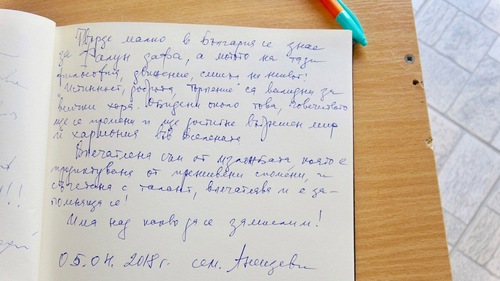 Твърде малко в България се знае
за Фалун дафа, а мотото на тази
философия, движение, смисъл на живот:
"Истинност, доброта, търпение" са валидни за
всички хора. Обединени около това, човечеството
ще се промени и ще достигне вътрешен мир
и хармония във Вселената.
Впечатлена съм от изложбата, която е
продиктувана от преживени спомени, и
съчетана с талант, впечатлява и е за-
помняща се!
Има над какво да се замислим!
05.04.2018 г. сем.
!!!